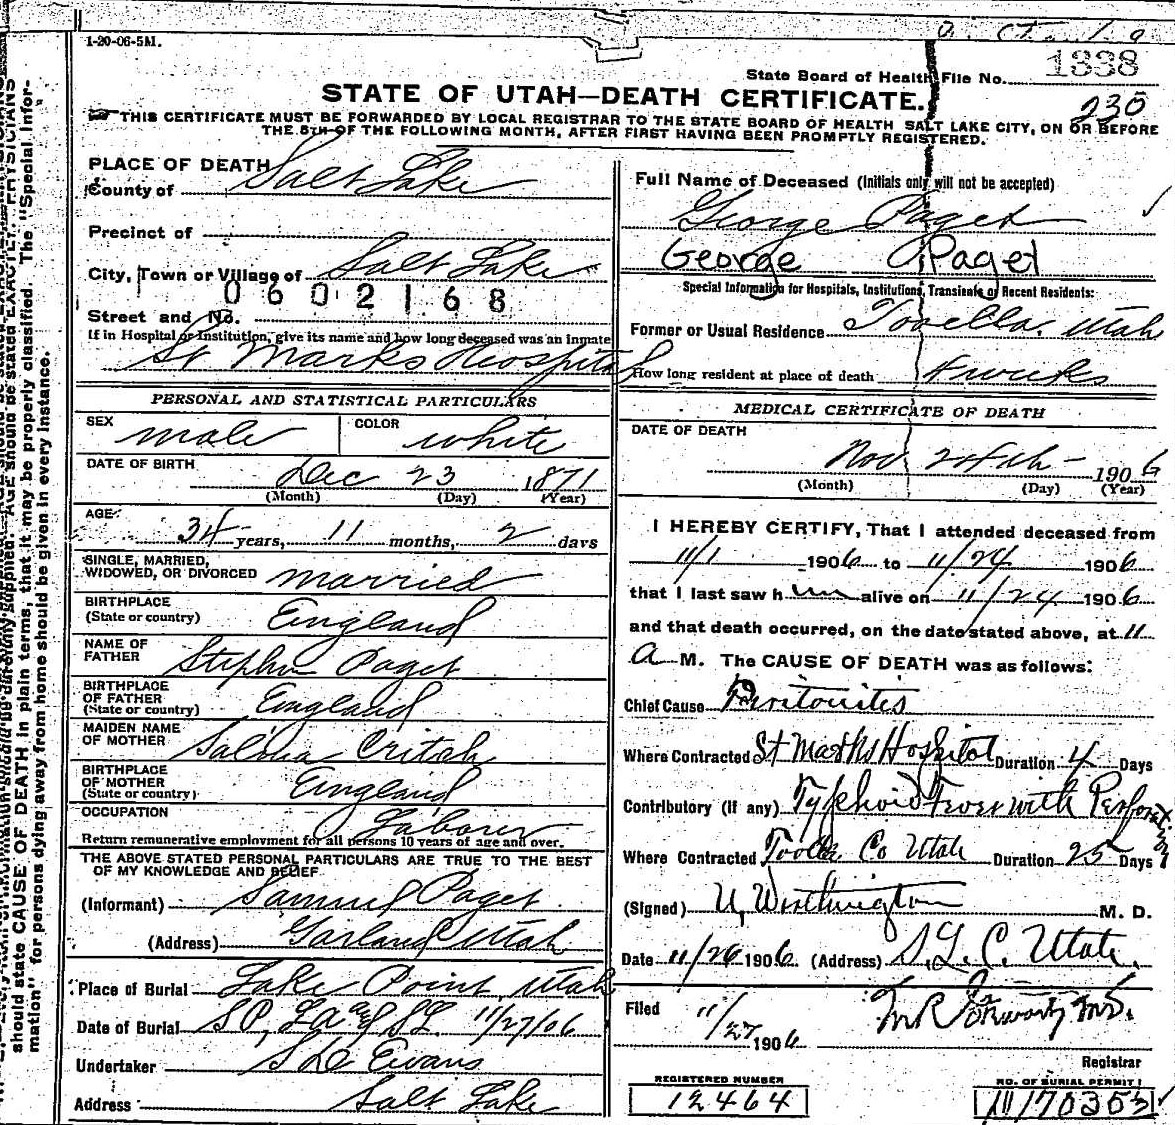 1-20-06-5M.
State Board of Health File No. 1338
230
STATE OF UTAH—DEATH CERTIFICATE.
THIS CERTIFICATE MUST BE FORWARDED BY LOCAL REGISTRAR TO THE STATE BOARD OF HEALTH SALT LAKE CITY, ON OR BEFORE
THE 8TH OF THE FOLLOWING MONTH, AFTER FIRST HAVING BEEN PROMPTLY REGISTERED.
PLACE OF DEATH
County of Salt Lake
Precinct of
City, Town or Village of Salt Lake
0602168
Street and No.
If in Hospital or Institution, give its name and how long deceased was an inmate
St Marks Hospital
PERSONAL AND STATISTICAL PARTICULARS
SEX male COLOR white
DATE OF BIRTH Dec 23 1871
(Month) (Day) (Year)
AGE 34 years, 11 months, 2 days
SINGLE, MARRIED,
WIDOWED, OR DIVORCED married
BIRTHPLACE
(State or country) England
NAME OF
FATHER Stephen Paget
BIRTHPLACE
OF FATHER
(State or country) England
MAIDEN NAME
OF MOTHER Critch
BIRTHPLACE
OF MOTHER
(State or country) England
OCCUPATION Laborer
Return remunerative employment for all persons 10 years of age and over.
THE ABOVE STATED PERSONAL PARTICULARS ARE TRUE TO THE BEST
OF MY KNOWLEDGE AND BELIEF
(Informant) Samuel Paget
(Address) Garland Utah
Place of Burial Lake Point, Utah
Date of Burial 11/27/06
Undertaker Evans
Address Salt Lake
Full Name of Deceased (Initials only will not be accepted)
George Paget
George Paget
Special Information for Hospitals, Institutions, Transients or Recent Residents:
Former or Usual Residence Tooella, Utah
How long resident at place of death 4 weeks
MEDICAL CERTIFICATE OF DEATH
DATE OF DEATH
Nov 24th - 1906
(Month) (Day) (Year)
I HEREBY CERTIFY, That I attended deceased from
11/1 1906 to 11/24 1906
that I last saw h im alive on 11/24 1906
and that death occurred, on the date stated above, at 11
A M. The CAUSE OF DEATH was as follows:
Chief Cause Peritonites
Where Contracted St Marks Hospital Duration 4 Days
Contributory (if any) Typhoid with
Where Contracted Tooele Co Utah Duration 25 Days
(Signed) U, Worthington M. D.
Date 11/26 1906. (Address) S. L. C. Utah.
Filed 11/27 1906
Registrar
REGISTERED NUMBER
12464
NO. OF BURIAL PERMIT
should state CAUSE OF DEATH in plain terms, that it may be properly classified. The "Special Infor-
mation" for persons dying away from home should be given in every instance.